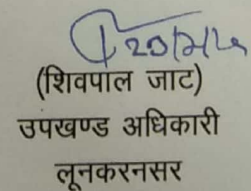 (शिवपाल जाट)
उपखण्ड अधिकारी
लूनकरनसर